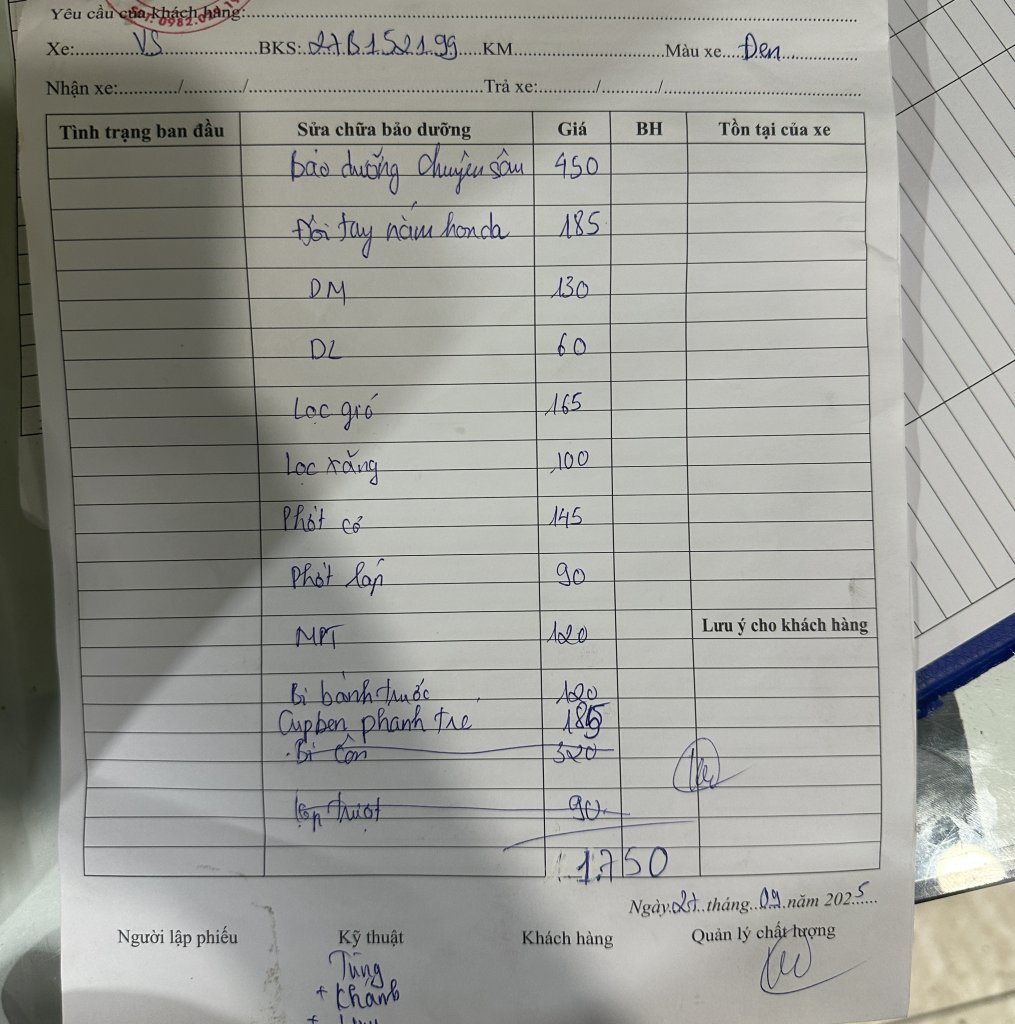 Yêu cầu của khách hàng:
Xe: VS BKS: 27B1 521.99 KM Màu xe Đen
Nhận xe: / / Trả xe: / /
Tình trạng ban đầu Sửa chữa bảo dưỡng Giá BH Tồn tại của xe
bảo dưỡng chuyên sâu 450
Đôi tay nắm honda 185
DM 130
DL 60
Lọc gió 165
Lọc xăng 100
Phớt cổ 145
Phớt láp 90
MPT 120
Lưu ý cho khách hàng
Bi bánh trước 120
Cupben phanh tre 185
Bi Côn 320
trượt 90
1.750
Ngày 27 tháng 09 năm 2025
Người lập phiếu Kỹ thuật Khách hàng Quản lý chất lượng
Tùng
+ Khánh